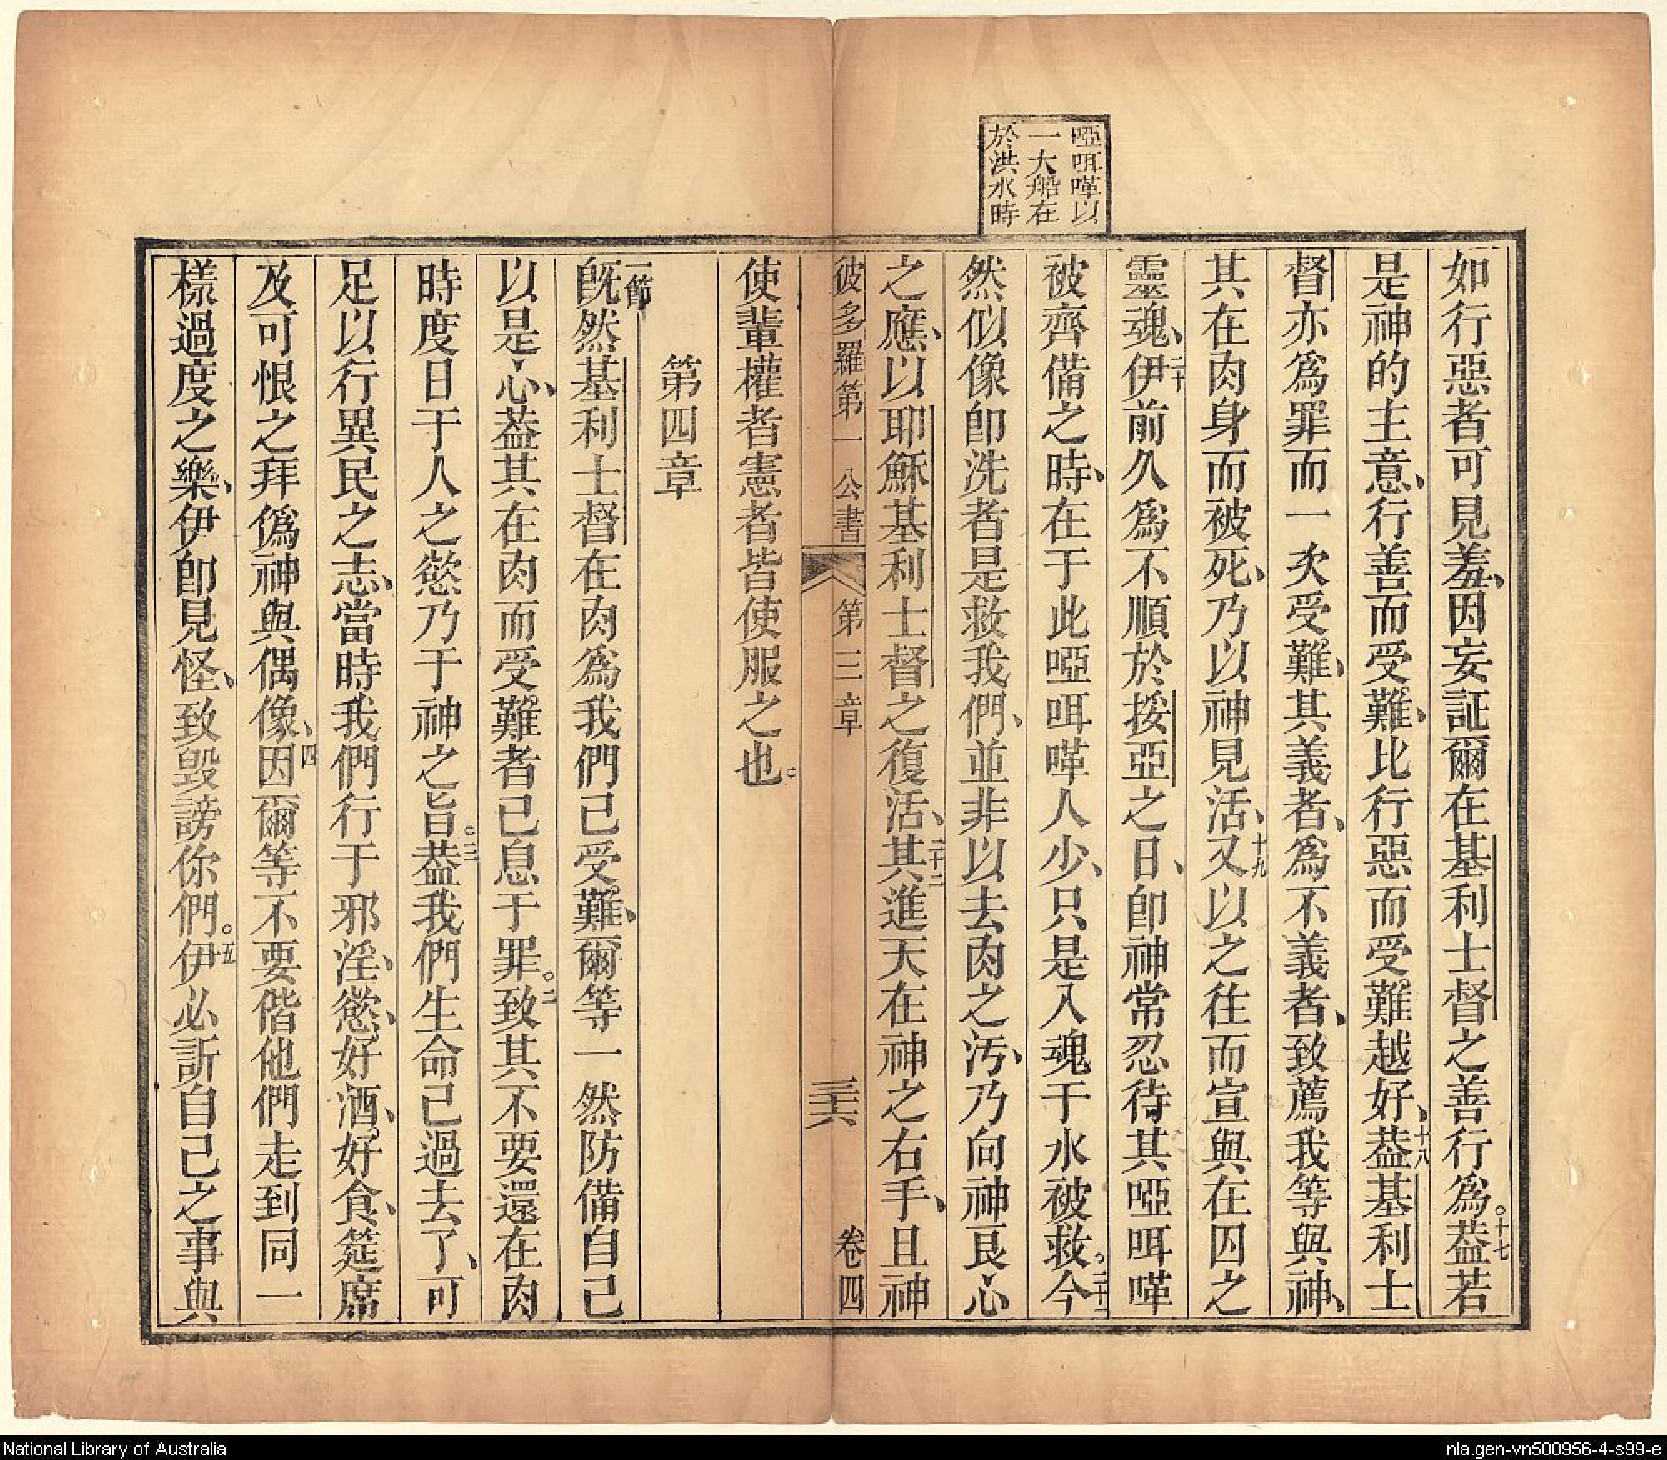 啞咡嘩以
一大船在
於洪水時
如行惡者可見羞、因妄証爾在基利士督之善行爲。十七葢若
是神的主意、行善而受難、比行惡而受難越好、十八葢基利士
督亦爲罪而一次受難、其義者、爲不義者、致薦我等與神、
其在肉身而被死、乃以神見活、十九又以之往而宣與在囚之
靈魂、二十伊前久爲不順於挼亞之日、卽神常忍待其啞咡嘩
被齊備之時、在于此啞咡嘩人少、只是入魂于水被救。二十一今
然似像卽洗者是救我們、並非以去肉之污、乃向神良心
之應、以耶穌基利士督之復活、二十二其進天在神之右手、且神
彼多羅第一公書 第三章 三十六 卷四
使輩權者憲者皆使服之也。
第四章
一節旣然基利士督在肉爲我們已受難、爾等一然防備自己
以是心、葢其在肉而受難者已息于罪。二致其不要還在肉
時度日于人之慾乃于神之旨。三葢我們生命已過去了、可
足以行異民之志、當時我們行于邪淫、慾、好酒、好食、筵席
及可恨之拜僞神與偶像、四因爾等不要偕他們走到同一
樣過度之樂、伊卽見怪、致毀謗你們。五伊必訴自己之事與
National Library of Australia
nla.gen-vn500956-4-s99-e